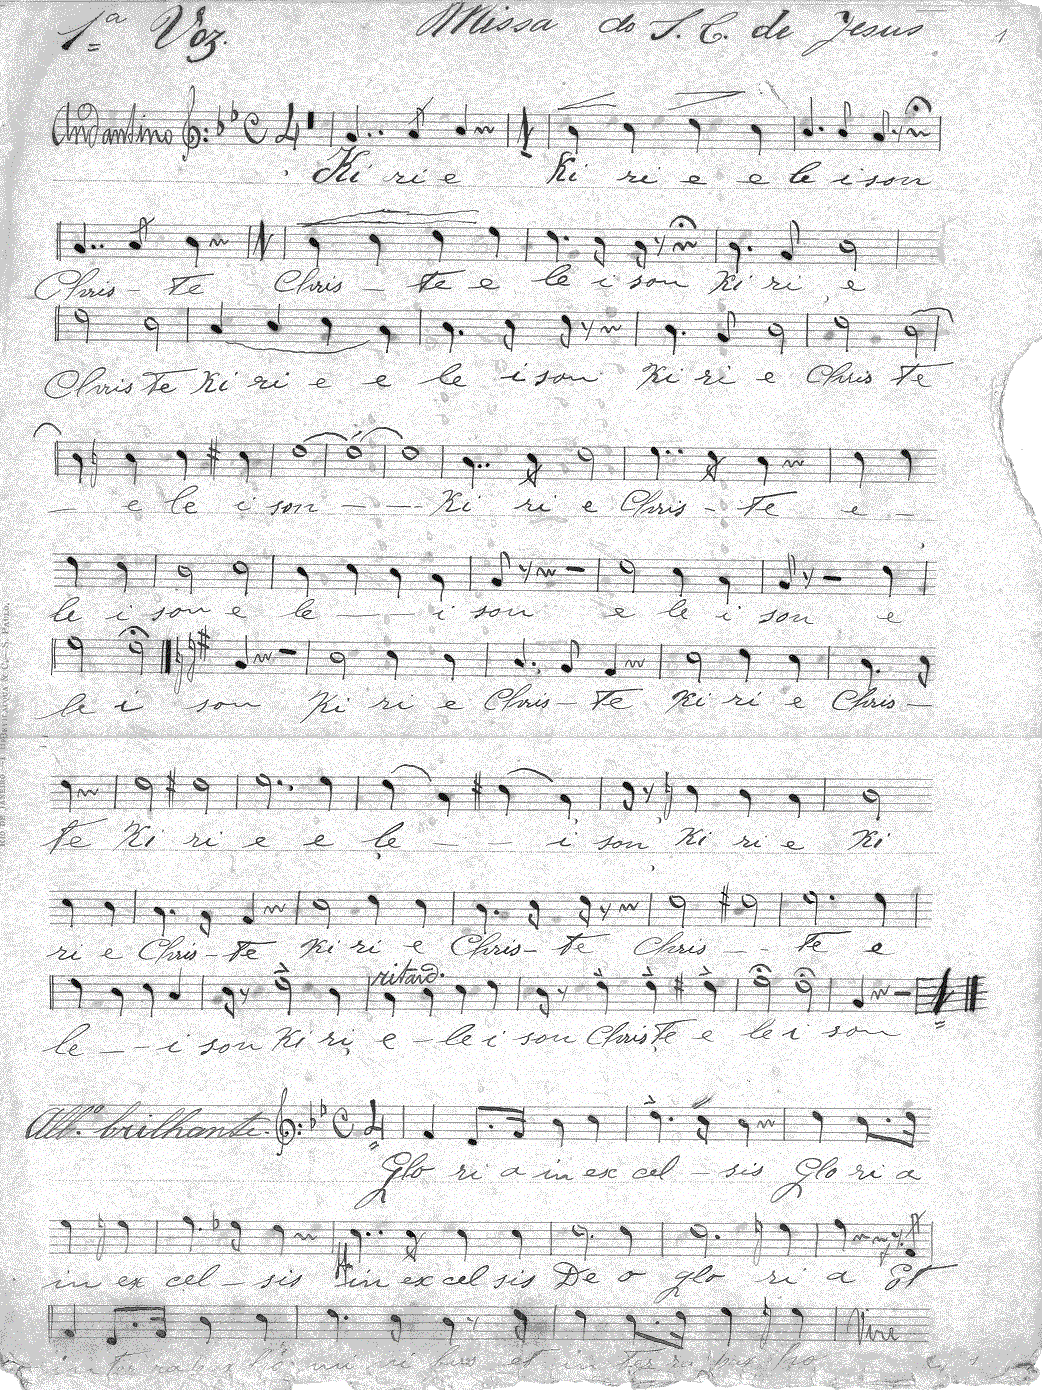 1ª Voz. Missa do S. C. de Jesus 1
Andantino
Ki ri e Ki ri e e le i son
Chris - te Chris - te e le i son Ki ri e
Chris te Ki ri e e le i son Ki ri e Chris te
- e le i son - - - Ki ri e Chris - te e -
le i son e le - - i son e le i son e
le i son Ki ri e Chris - te Ki ri e Chris -
te Ki ri e e le - - i son Ki ri e Ki
ri e Chris - te Ki ri e Chris - te Chris - - te e
ritard.
le - - i son Ki ri e - le i son Chris te e le i son
Allº. brilhante
Glo ri a in ex cel - sis Glo ri a
in ex cel - sis in ex cel sis De o glo ri a Et
Vire
in ter ra pax et in ter ra pax ho